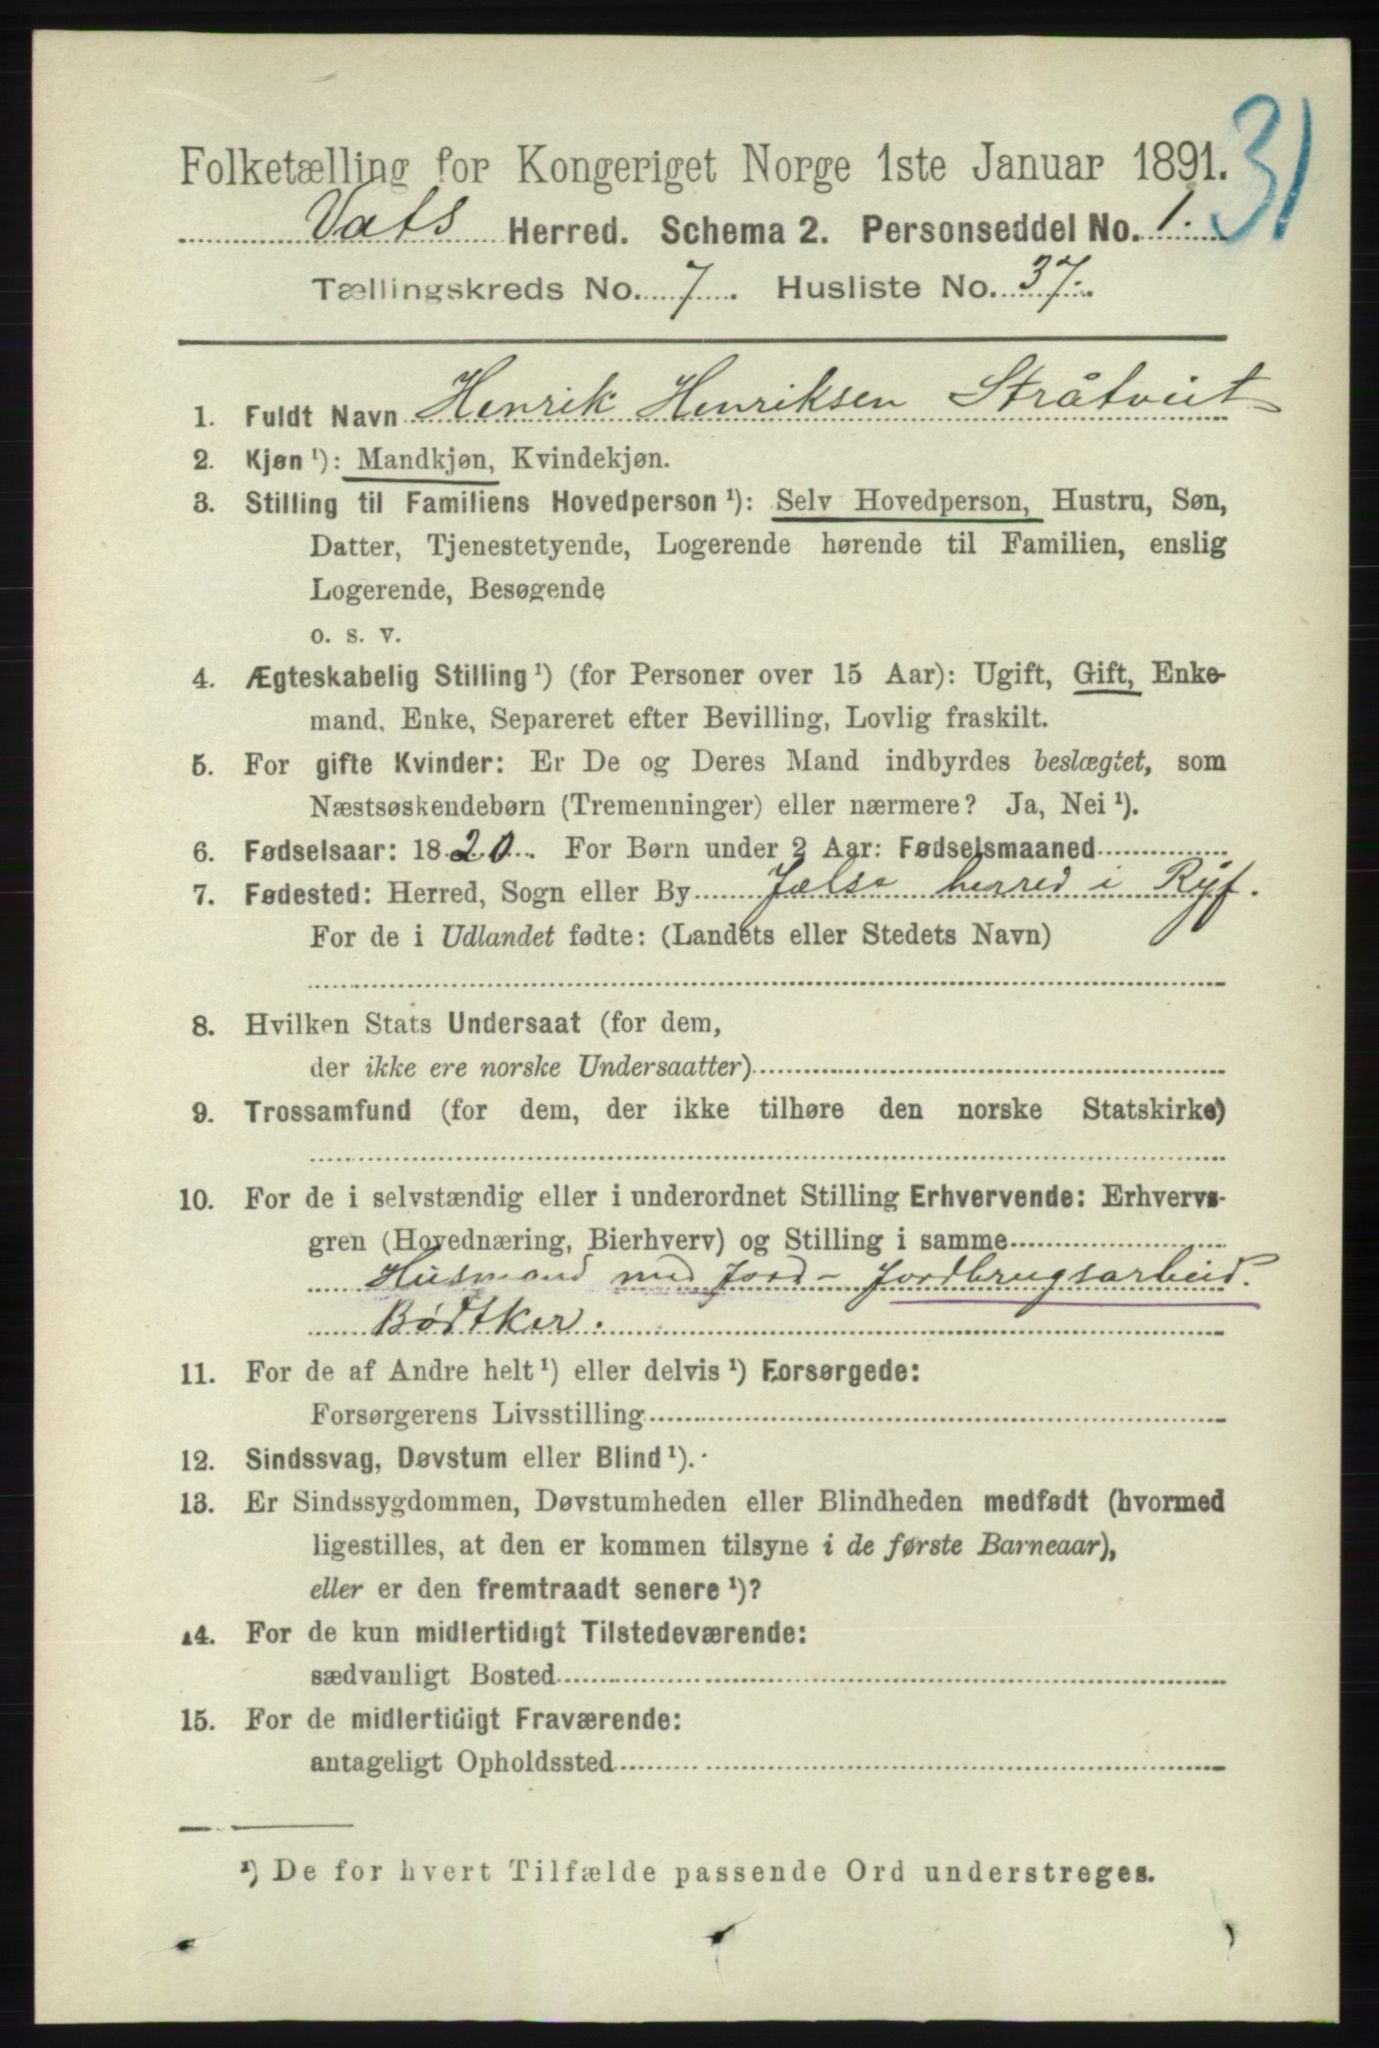 31
Folketælling for Kongeriget Norge 1ste Januar 1891.
Vats Herred. Schema 2. Personseddel No. 1.
Tællingskreds No. 7. Husliste No. 37.
1. Fuldt Navn Henrik Henriksen Stråtveit
2. Kjøn ¹): Mandkjøn, Kvindekjøn.
3. Stilling til Familiens Hovedperson ¹): Selv Hovedperson, Hustru, Søn,
Datter, Tjenestetyende, Logerende hørende til Familien, enslig
Logerende, Besøgende
o. s. v.
4. Ægteskabelig Stilling ¹) (for Personer over 15 Aar): Ugift, Gift, Enke-
mand, Enke, Separeret efter Bevilling, Lovlig fraskilt.
5. For gifte Kvinder: Er De og Deres Mand indbyrdes beslægtet, som
Næstsøskendebørn (Tremenninger) eller nærmere? Ja, Nei ¹).
6. Fødselsaar: 1820. For Børn under 2 Aar: Fødselsmaaned
7. Fødested: Herred, Sogn eller By Jælse herred i Ryf.
For de i Udlandet fødte: (Landets eller Stedets Navn)
8. Hvilken Stats Undersaat (for dem,
der ikke ere norske Undersaatter)
9. Trossamfund (for dem, der ikke tilhøre den norske Statskirke)
10. For de i selvstændig eller i underordnet Stilling Erhvervende: Erhvervs-
gren (Hovednæring, Bierhverv) og Stilling i samme
Husmand med Jord - Jordbrugsarbeid.
Bødtker.
11. For de af Andre helt ¹) eller delvis ¹) Forsørgede:
Forsørgerens Livsstilling
12. Sindssvag, Døvstum eller Blind ¹).
13. Er Sindssygdommen, Døvstumheden eller Blindheden medfødt (hvormed
ligestilles, at den er kommen tilsyne i de første Barneaar),
eller er den fremtraadt senere ¹)?
14. For de kun midlertidigt Tilstedeværende:
sædvanligt Bosted
15. For de midlertidigt Fraværende:
antageligt Opholdssted
¹) De for hvert Tilfælde passende Ord understreges.